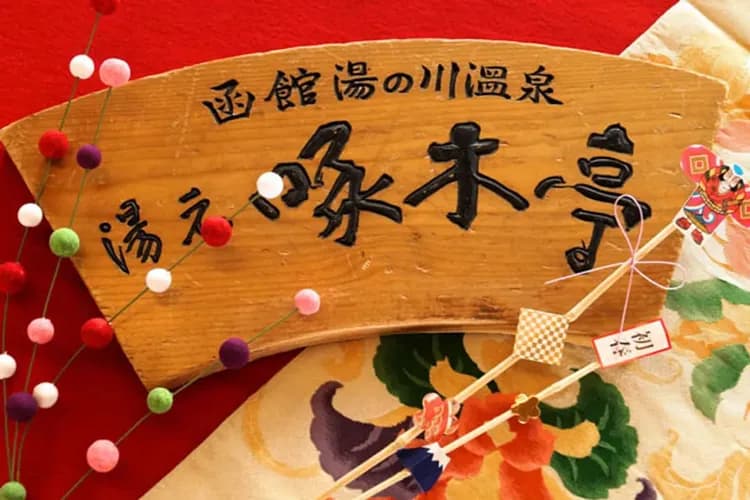 函館湯の川温泉
湯元啄木亭